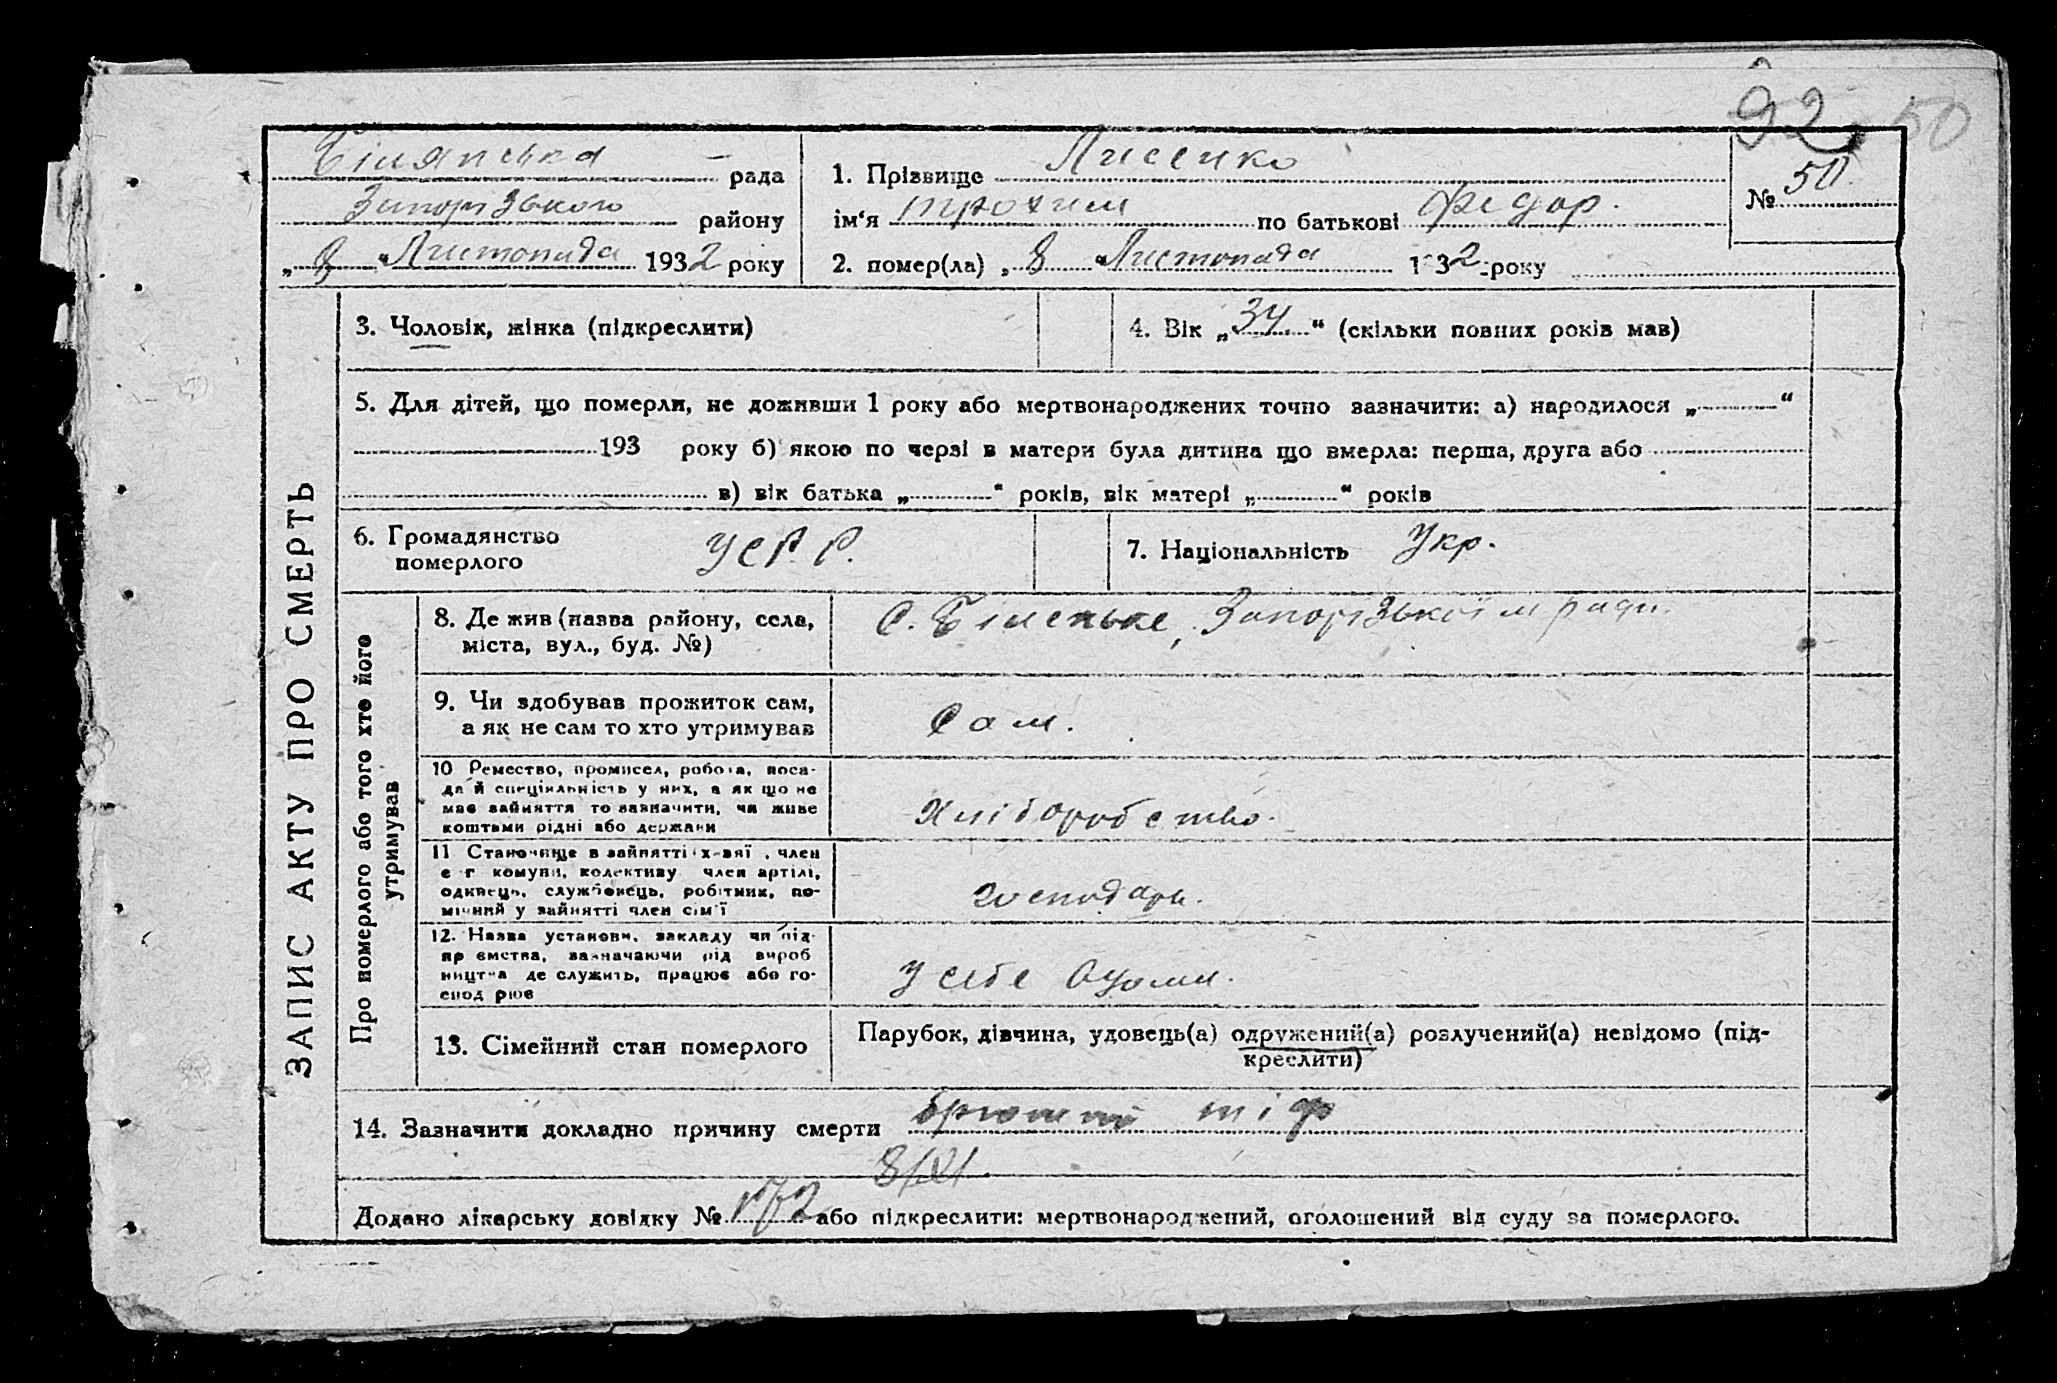 92. 50
Білянська рада
Запорізького району
„ 8 “ Листопада 1932 року
1. Прізвище Лисенко
ім‘я Трохим по батькові Федор.
2. помер(ла) „ 8 “ Листопада 1932 року
№ 50
ЗАПИС АКТУ ПРО СМЕРТЬ
3. Чоловік, жінка (підкреслити)
4. Вік „ 34 “ (скільки повних років мав)
5. Для дітей, що померли, не доживши 1 року або мертвонароджених точно зазначити: а) народилося „ “
193 року б) якою по черзі в матери була дитина що вмерла: перша, друга або
в) вік батька „ “ років, вік матері „ “ років
6. Громадянство
померлого
УСРР.
7. Національність Укр.
Про померлого або того хто його
утримував
8. Де жив (назва району, села,
міста, вул., буд. №)
С. Біленьке, Запорізької м ради.
9. Чи здобував прожиток сам,
а як не сам то хто утримував
Сам.
10 Ремество, промисел, робота, поса-
да й спеціяльність у них, а як що не
має зайняття то зазначити, чи живе
коштами рідні або держави
Хліборобство.
11 Становище в зайнятті: х-зяї , член
с г комуни, колективу член артілі,
одинець, службовець, робітник, по-
мічний у зайнятті член сім‘ї
господарь.
12. Назва установи, закладу чи під-
пр ємства, зазначаючи рід вироб
ництва де служить, працює або го-
спод рює
У себе
13. Сімейний стан померлого
Парубок, дівчина, удовець(а) одружений(а) розлучений(а) невідомо (під-
креслити)
14. Зазначити докладно причину смерти брюшний тіф
8/XI
Додано лікарську довідку № або підкреслити: мертвонароджений, оголошений від суду за померлого.